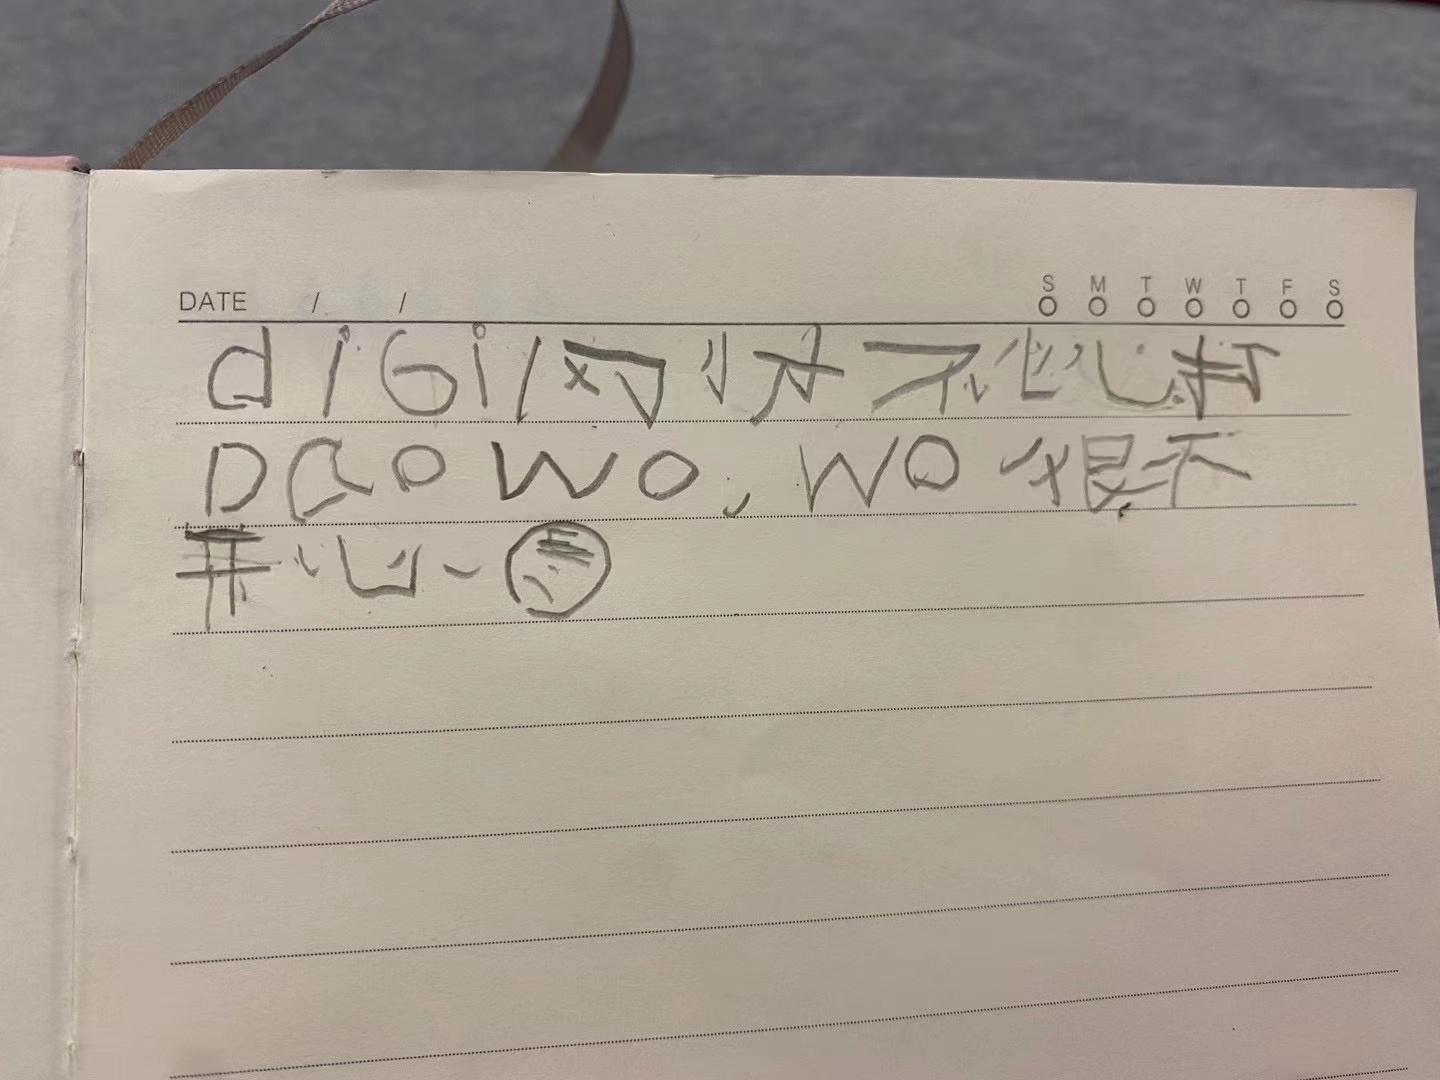 DATE / /
S M T W T F S
diGi 对 不 心 打
DaO WO, WO 很不
开心